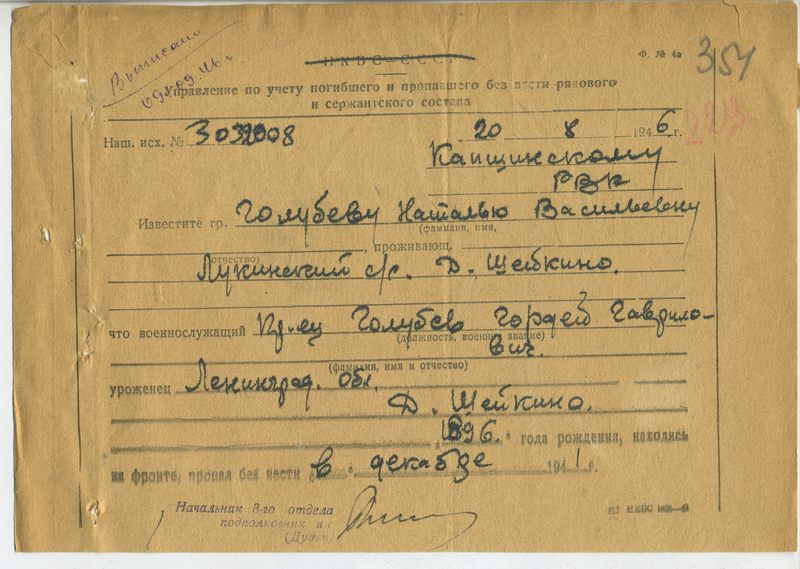 Выписано
09.09.46 г
НКВС-СССР
Ф. № 4а
351
Управление по учету погибшего и пропавшего без вести рядового
и сержантского состава
229
Наш. исх. № 20 8 1946 г.
Капшинскому
РВК
Известите гр. Голубеву Наталью Васильевну
(фамилия, имя,
, проживающ.
отчество)
Лукинский с/с. Д. Шейкино.
что военнослужащий Кр-ец Голубев Гордей Гаврило-
(должность, военное звание)
вич.
(фамилия, имя и отчество)
уроженец Ленинград. обл.
Д. Шейкино.
1896. года рождения, находясь
на фронте, пропал без вести в декабре 1941 г.
Начальник 3-го отдела
подполковник и с